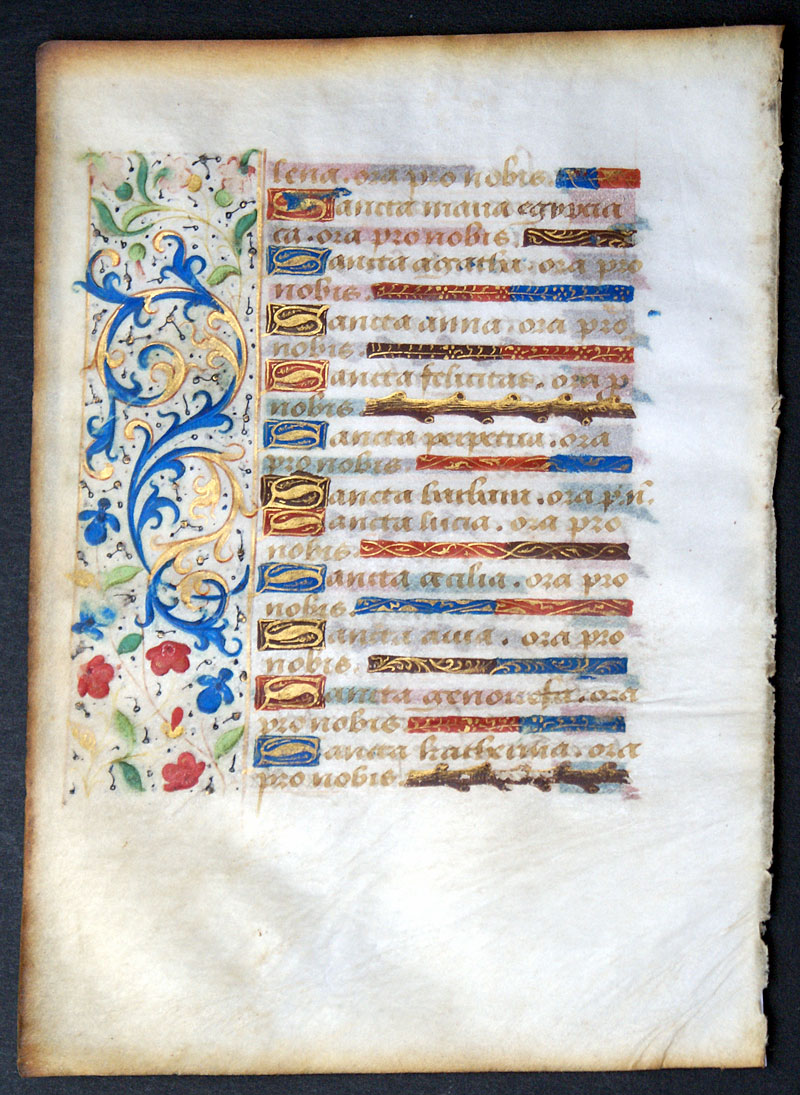 lena. ora pro nobis.
Sancta maria egypcia
ca. ora pro nobis
Sancta agatha. ora pro
nobis.
Sancta anna. ora pro
nobis.
Sancta felicitas. ora p
nobis.
Sancta perpetua. ora
pro nobis
Sancta barbara. ora p.n.
Sancta lucia. ora pro
nobis.
Sancta cecilia. ora pro
nobis.
Sancta . ora pro
nobis.
Sancta genovefa. ora
pro nobis
Sancta katherina. ora
pro nobis.